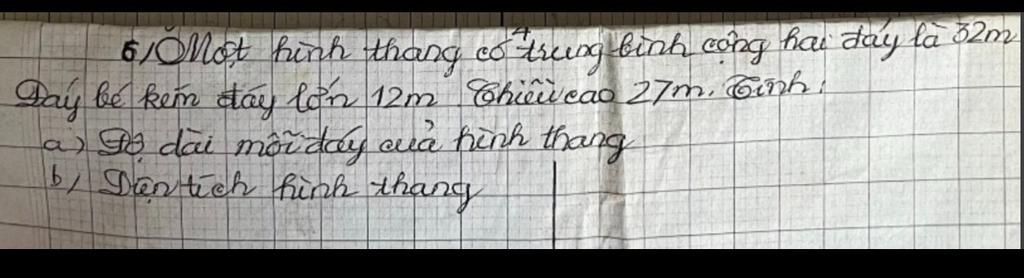 5/ Một hình thang có trung bình cộng hai đáy là 32m
Đáy bé kém đáy lớn 12m Chiều cao 27m. Tính:
a) Độ dài mỗi đáy của hình thang
b/ Diện tích hình thang